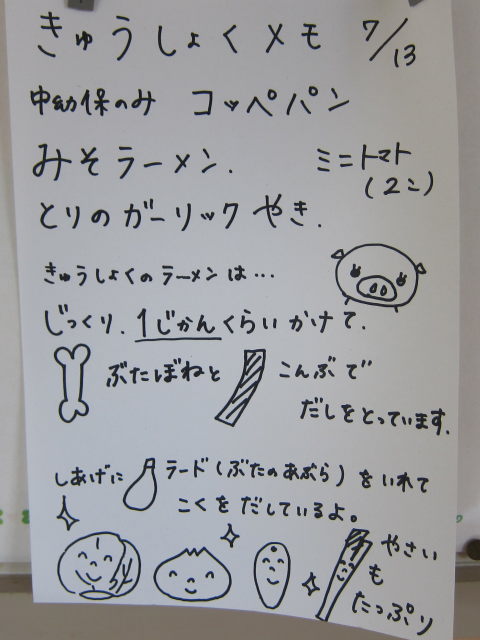 きゅうしょくメモ 7/13
中幼保のみ コッペパン
みそラーメン. ミニトマト
(2コ)
とりのガーリックやき.
きゅうしょくのラーメンは…
じっくり. 1じかんくらいかけて.
ぶたぼねと こんぶで
だしをとっています.
しあげに ラード(ぶたのあぶら)をいれて
こくをだしているよ。
やさい
も
たっぷり